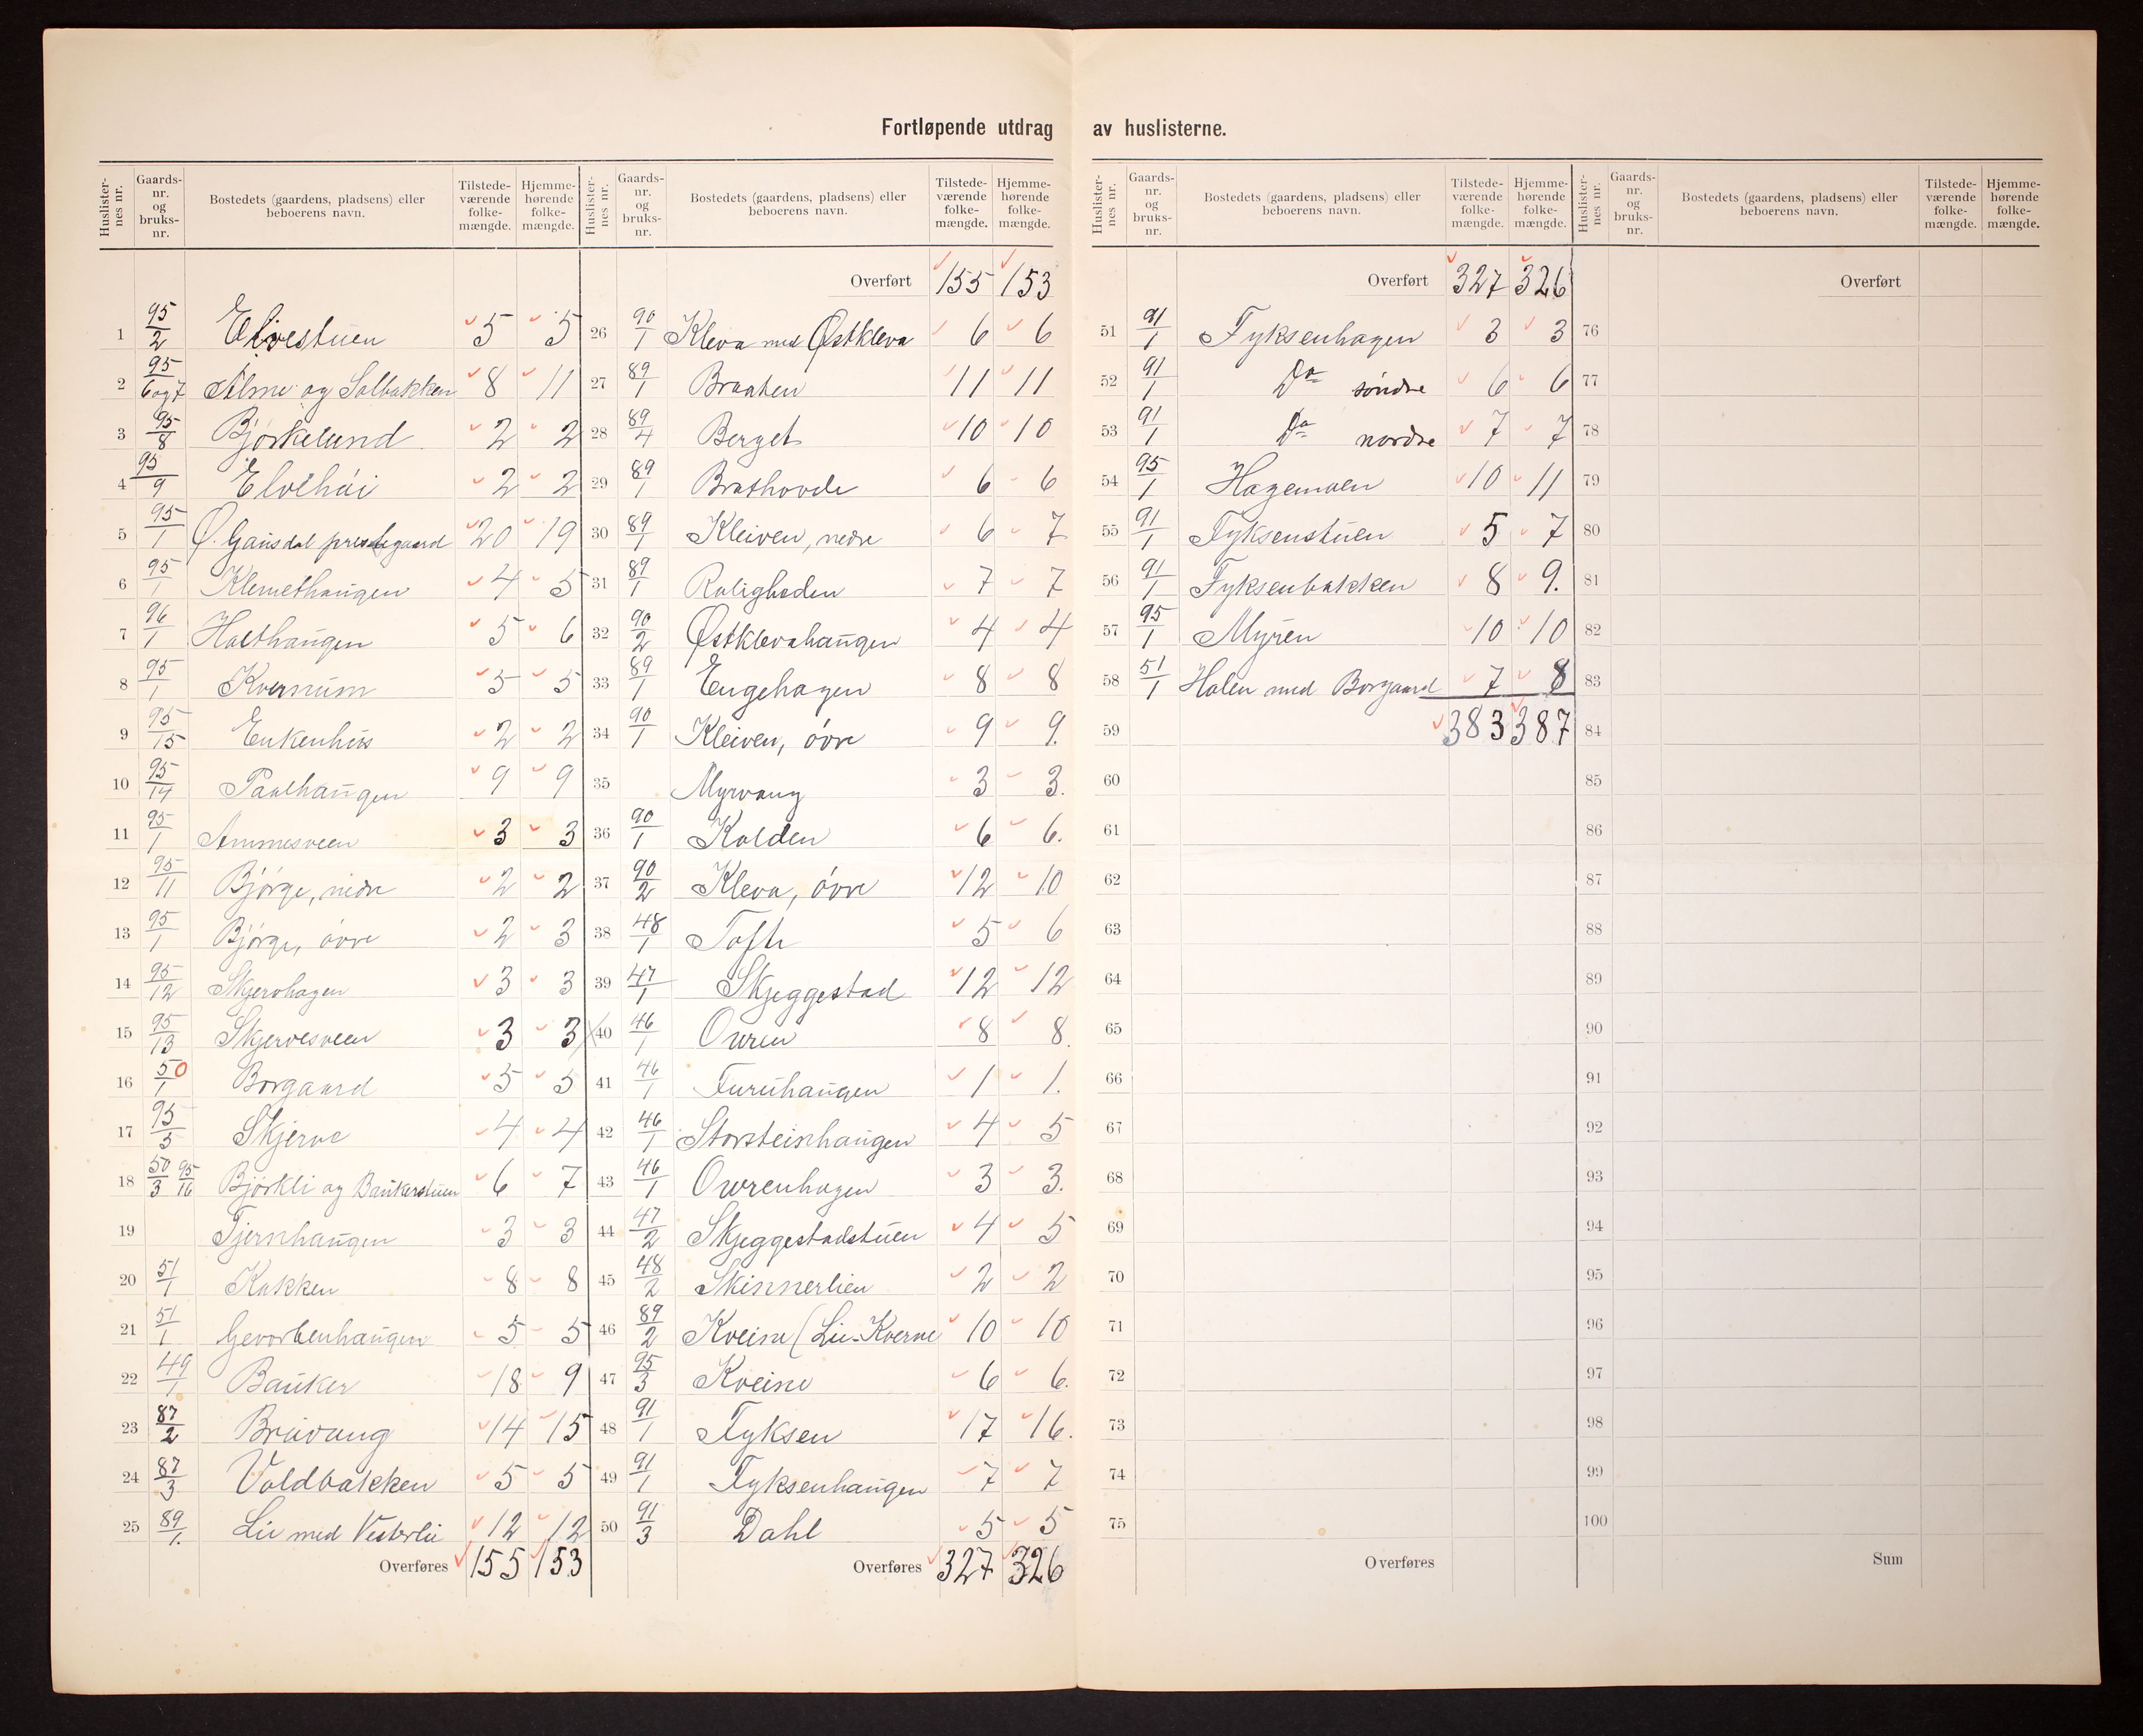 Fortløpende utdrag av huslisterne.
Huslisternes nr. Gaards-nr. og bruks-nr. Bostedets (gaardens, pladsens) eller beboerens navn. Tilstedeværende folkemængde. Hjemmehørende folkemængde.
1 95/2 Elvestuen 5 5
2 95/6 og 7 Alme og Solbakken 8 11
3 95/8 Bjørkelund 2 2
4 95/9 Elvehøi 2 2
5 95/1 Ø. Gausdal prestegaard 20 19
6 95/1 Klemethaugen 4 5
7 96/1 Holthaugen 5 6
8 95/1 Kvernum 5 5
9 95/15 Enkenhus 2 2
10 95/14 Paalhaugen 9 9
11 95/1 Ammesveen 3 3
12 95/11 Bjørge, nedre 2 2
13 95/1 Bjørge, øvre 2 3
14 95/12 Skjervhagen 3 3
15 95/13 Skjervesveen 3 3
16 50/1 Borgaard 5 5
17 95/5 Skjerve 4 4
18 50/3 95/16 Bjørkli og Baukerstuen 6 7
19 Tjernhaugen 3 3
20 51/1 Kakken 8 8
21 51/1 Gevorbenhaugen 5 5
22 49/1 Bauker 18 9
23 87/2 Bruvang 14 15
24 87/3 Voldbakken 5 5
25 89/1. Lie med Vesterlie 12 12
Overføres 155 153
Huslisternes nr. Gaards-nr. og bruks-nr. Bostedets (gaardens, pladsens) eller beboerens navn. Tilstedeværende folkemængde. Hjemmehørende folkemængde.
Overført 155 153
26 90/1 Kleva med Østkleva 6 6
27 89/1 Braaten 11 11
28 89/4 Berget 10 10
29 89/1 Brathovde 6 6
30 89/1 Kleiven, nedre 6 7
31 89/1 Roligheden 7 7
32 90/2 Østklevahaugen 4 4
33 89/1 Engehagen 8 8
34 90/1 Kleiven, øvre 9 9.
35 Myrvang 3 3.
36 90/1 Kolden 6 6.
37 90/2 Kleva, øvre 12 10
38 48/1 Toft 5 6
39 47/1 Skjeggestad 12 12
40 46/1 Ovren 8 8.
41 46/1 Furuhaugen 1 1.
42 46/1 Storsteinhaugen 4 5
43 46/1 Ovrenhagen 3 3.
44 47/2 Skjeggestadstuen 4 5
45 48/2 Skinnerlien 2 2
46 89/2 Kveine (Lie-Kverne 10 10
47 95/3 Kveine 6 6.
48 91/1 Fyksen 17 16.
49 91/1 Fyksenhaugen 7 7
50 91/3 Dahl 5 5
Overføres 327 326
Huslisternes nr. Gaards-nr. og bruks-nr. Bostedets (gaardens, pladsens) eller beboerens navn. Tilstedeværende folkemængde. Hjemmehørende folkemængde.
Overført 327 326
51 91/1 Fyksenhagen 3 3
52 91/1 Do søndre 6 6
53 91/1 Do nordre 7 7
54 95/1 Hagemoen 10 11
55 91/1 Fyksenstuen 5 7
56 91/1 Fyksenbakken 8 9.
57 95/1 Myren 10 10
58 51/1 Holen med Borgaard 7 8
59 383 387
60
61
62
63
64
65
66
67
68
69
70
71
72
73
74
75
Overføres
Huslisternes nr. Gaards-nr. og bruks-nr. Bostedets (gaardens, pladsens) eller beboerens navn. Tilstedeværende folkemængde. Hjemmehørende folkemængde.
Overført
76
77
78
79
80
81
82
83
84
85
86
87
88
89
90
91
92
93
94
95
96
97
98
99
100
Sum